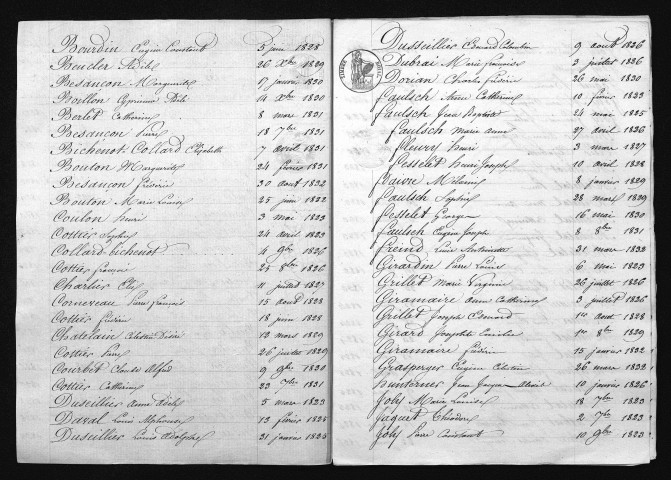 Bourdin Eugène Constant 5 juin 1828
Beucler Adèle 26 Xbre 1829
Besançon Marguerite 17 janvier 1830
Boillon Cyprienne Adèle 19 Xbre 1830
Berlet Catherine 8 mars 1831
Besançon Pierre 18 7bre 1831
Bichenot-Collard Elisabeth 7 avril 1831
Bouton Marguerite 24 février 1831
Besançon Frédéric 30 août 1832
Bouton Marie Louise 25 juin 1822
Coulon Henri 3 mai 1823
Cottier Sophie 24 avril 1823
Collard-bichenot 4 9bre 1826
Cottier François 25 8bre 1826
Charlier Eloy 11 juillet 1827
Corneveau Pierre François 15 août 1828
Cottier Frédéric 18 juin 1828
Chatelain Célestin Désiré 12 mars 1829
Cottier Pierre 26 juillet 1829
Courbet Claude Alfred 9 9bre 1830
Cottier Catherine 23 7bre 1831
Duseillier Anne Adèle 5 mars 1823
Daval Louis Alphonse 13 février 1825
Duseillier Louis Adolphe 31 janvier 1825
Dusseillier Edouard Colombin 9 août 1826
Dubrai Marie Françoise 3 juillet 1826
Dorian Charles Frédéric 26 mai 1830
Faulsch Anne Catherine 10 février 1823
Faulsch Jean Baptiste 24 mai 1825
Faulsch Marie Anne 27 avril 1826
Fleury Henri 3 mars 1827
Fesselet Henri Joseph 10 avril 1828
Faivre Mélanie 8 janvier 1829
Faulsch Sophie 28 mars 1829
Fesselet Georges 16 mai 1830
Faulsch Eugène Joseph 8 8bre 1831
Freind Marie Antoinette 31 mars 1832
Girardin Pierre Louis 6 mai 1823
Grillet Marie Virginie 26 juillet 1826
Giramaire Anne Catherine 3 juillet 1826
Grillet Joseph Edouard 1er août 1828
Girard Josephte Emilie 1er 8bre 1829
Giramaire Frédéric 15 janvier 1832
Grasperger Eugène Célestin 26 mars 1832
Jean Jacques 10 janvier 1826
Joly Marie Louise 18 7bre 1823
Jaquet Théodore 2 7bre 1823
Joly Pierre Constant 10 9bre 1823